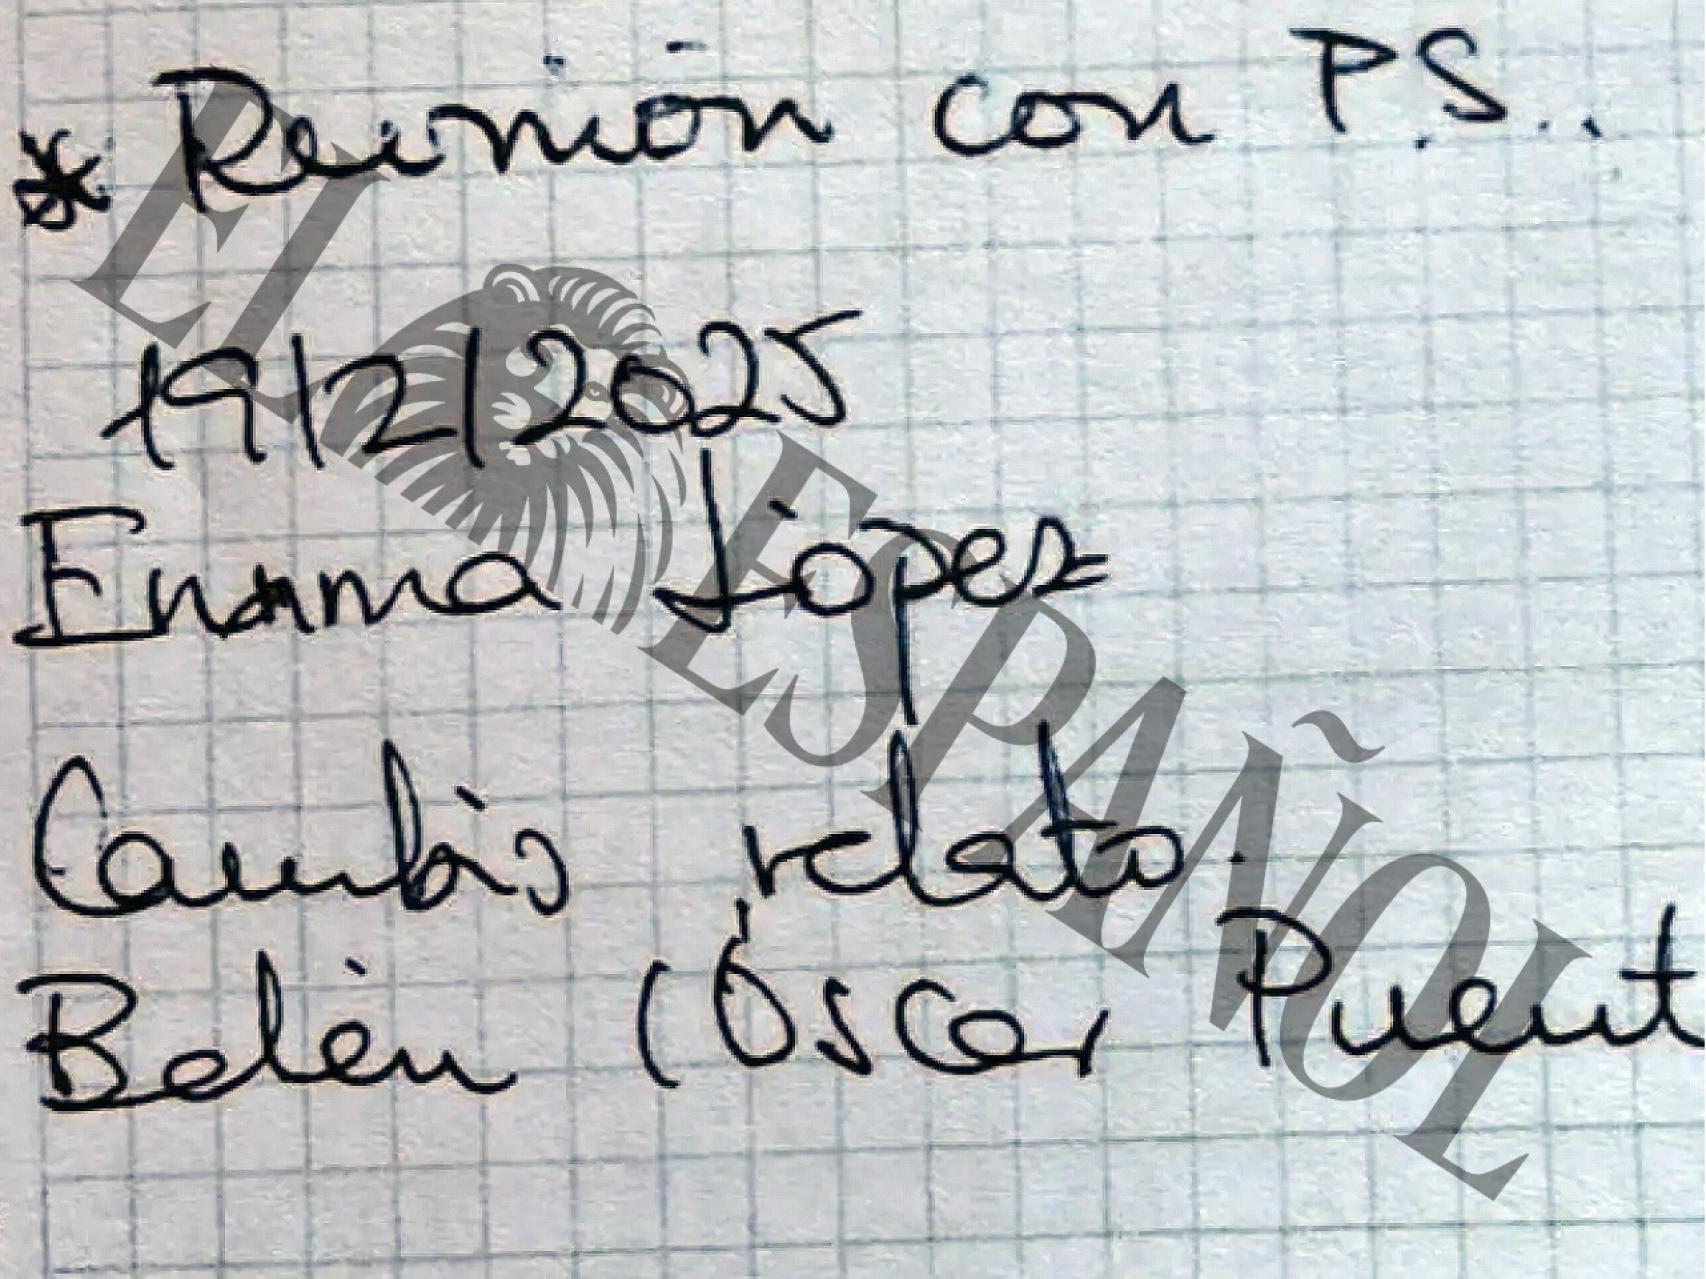 * Reunión con P.S..
19/2/2025
Emma López
Cambió relato.
Belén (Óscar Puent
EL ESPAÑOL